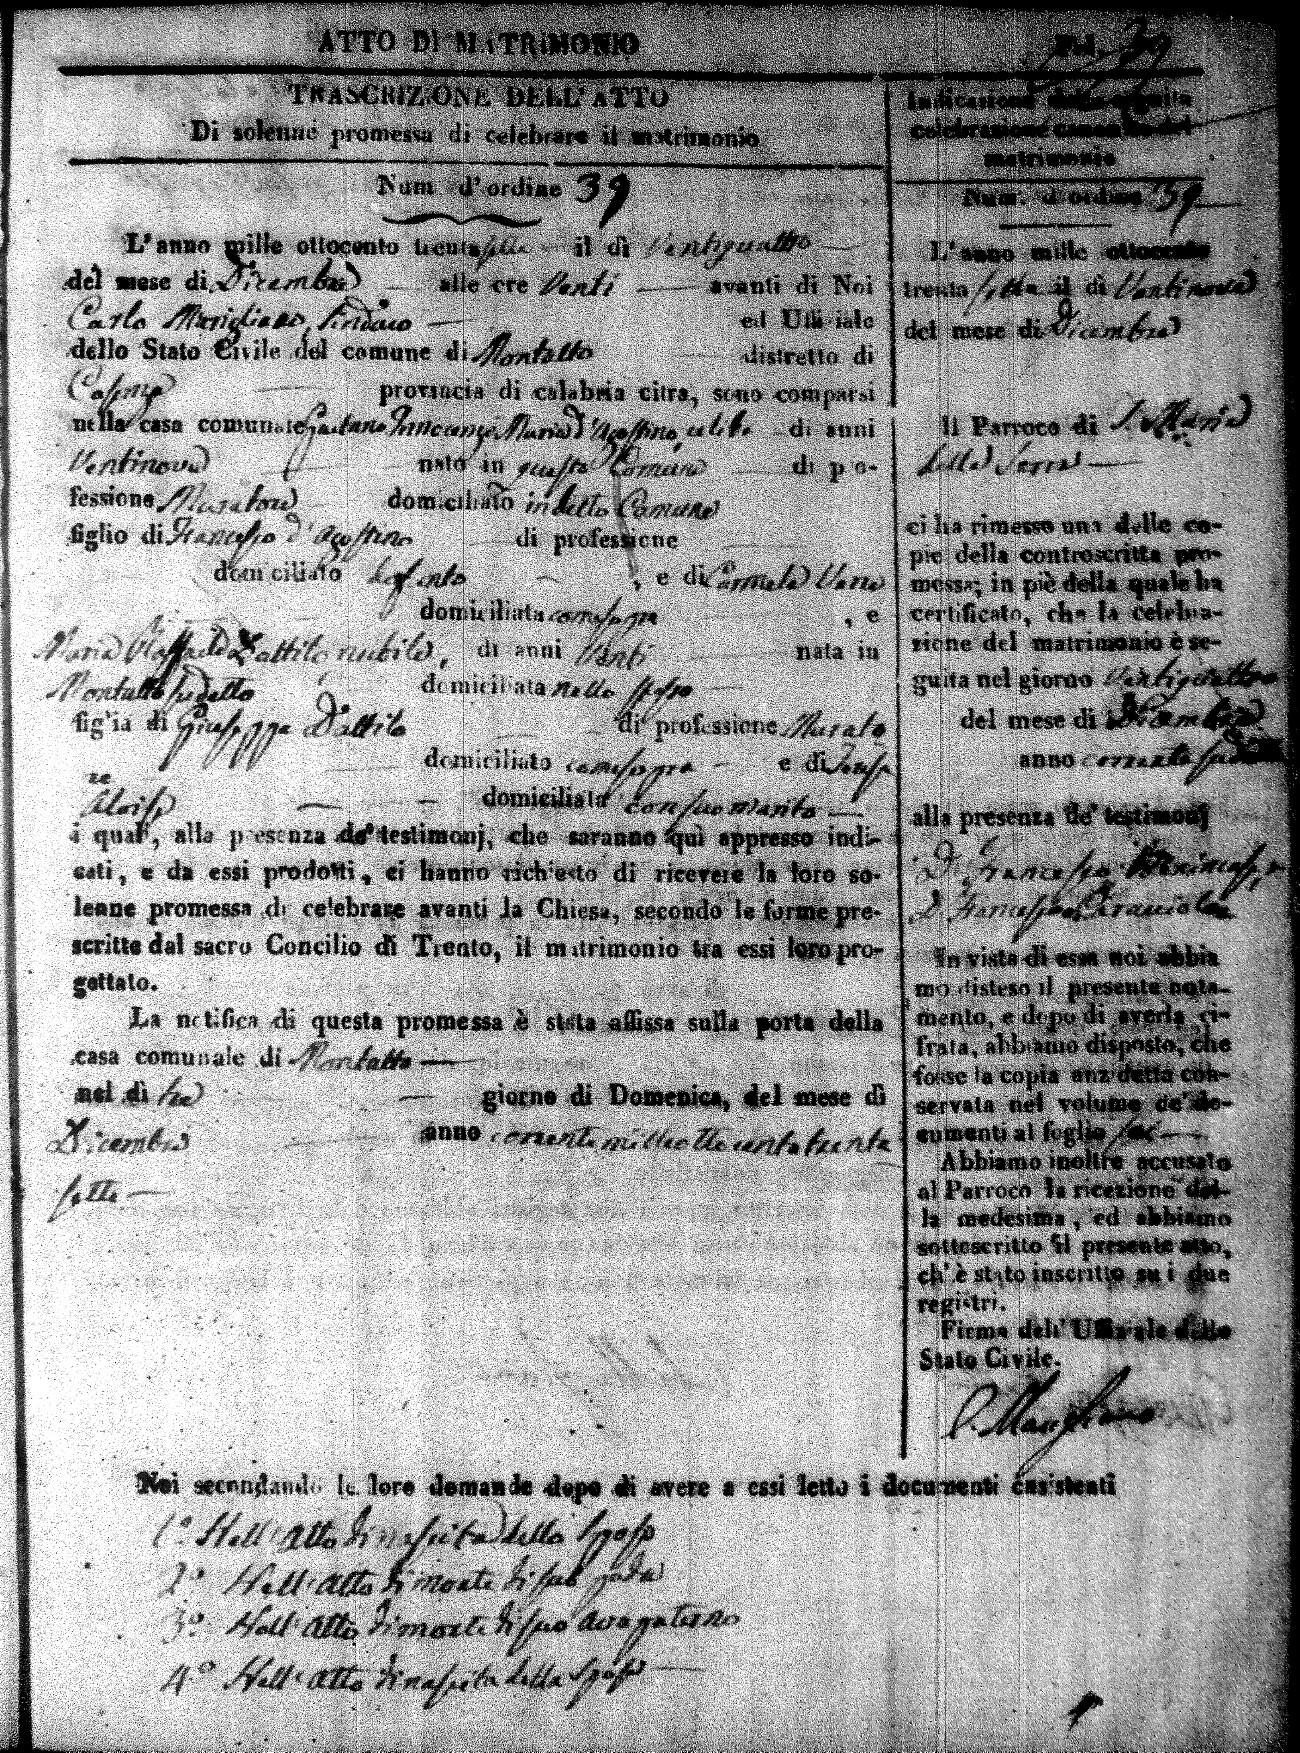 ATTO DI MATRIMONIO
Fol. 39
TRASCRIZIONE DELL'ATTO
Di solenne promessa di celebrare il matrimonio
Num d'ordine 39
L'anno mille ottocento trentasette il dì Ventiquattro
del mese di Dicembre alle ore Venti avanti di Noi
Carlo Marigliano Sindaco ed Uffiziale
dello Stato Civile del comune di Montalto distretto di
Cosenza provincia di calabria citra, sono comparsi
nella casa comunale Gaetano Innocenzo Maria d'Agostino celibe di anni
Ventinove nato in questo Comune di pro-
fessione Muratore domiciliato in detto Comune
figlio di Francesco d'Agostino di professione
domiciliato defunto, e di Carmela
domiciliata come sopra, e
Maria Raffaela D'attilo nubile, di anni Venti nata in
Montalto sudetto domiciliata nello stesso
figlia di Giuseppe D'attilo di professione Murato
re domiciliato come sopra e di Teresa
Aloise domiciliata con suo marito
i quali, alla presenza de' testimonj, che saranno quì appresso indi-
cati, e da essi prodotti, ci hanno richiesto di ricevere la loro so-
lenne promessa di celebrare avanti la Chiesa, secondo le forme pre-
scritte dal sacro Concilio di Trento, il matrimonio tra essi loro pro-
gettato.
La notifica di questa promessa è stata affissa sulla porta della
casa comunale di Montalto
nel dì tre giorno di Domenica, del mese di
Dicembre anno corrente mille ottocento trenta
sette
Indicazione della seguita
celebrazione canonica del
matrimonio
Num. d'ordine 39
L'anno mille ottocento
trenta sette il dì Ventinove
del mese di Dicembre
Il Parroco di S. Maria
della Serra
ci ha rimesso una delle co-
pie della controscritta pro-
messa; in piè della quale ha
certificato, che la celebra-
zione del matrimonio è se-
guita nel giorno Ventiquattro
del mese di Dicembre
anno corrente sudetto
alla presenza de' testimonj
D. Francesco
D. Francesco
In vista di essa noi abbia
mo disteso il presente nota-
mento, e dopo di averla ci-
frata, abbiamo disposto, che
fosse la copia anzidetta con-
servata nel volume de' do-
cumenti al foglio sei
Abbiamo inoltre accusato
al Parroco la ricezione del-
la medesima, ed abbiamo
sottoscritto il presente atto,
ch'è stato inscritto su i due
registri.
Firma dell'Uffiziale dello
Stato Civile.
C. Marigliano
Noi secondando le loro domande dopo di avere a essi letto i documenti consistenti
1.º Nell'atto di nascita dello Sposo
2.º Nell'atto di morte di suo padre
3.º Nell'atto di morte di suo avo paterno
4.º Nell'atto di nascita della Sposa